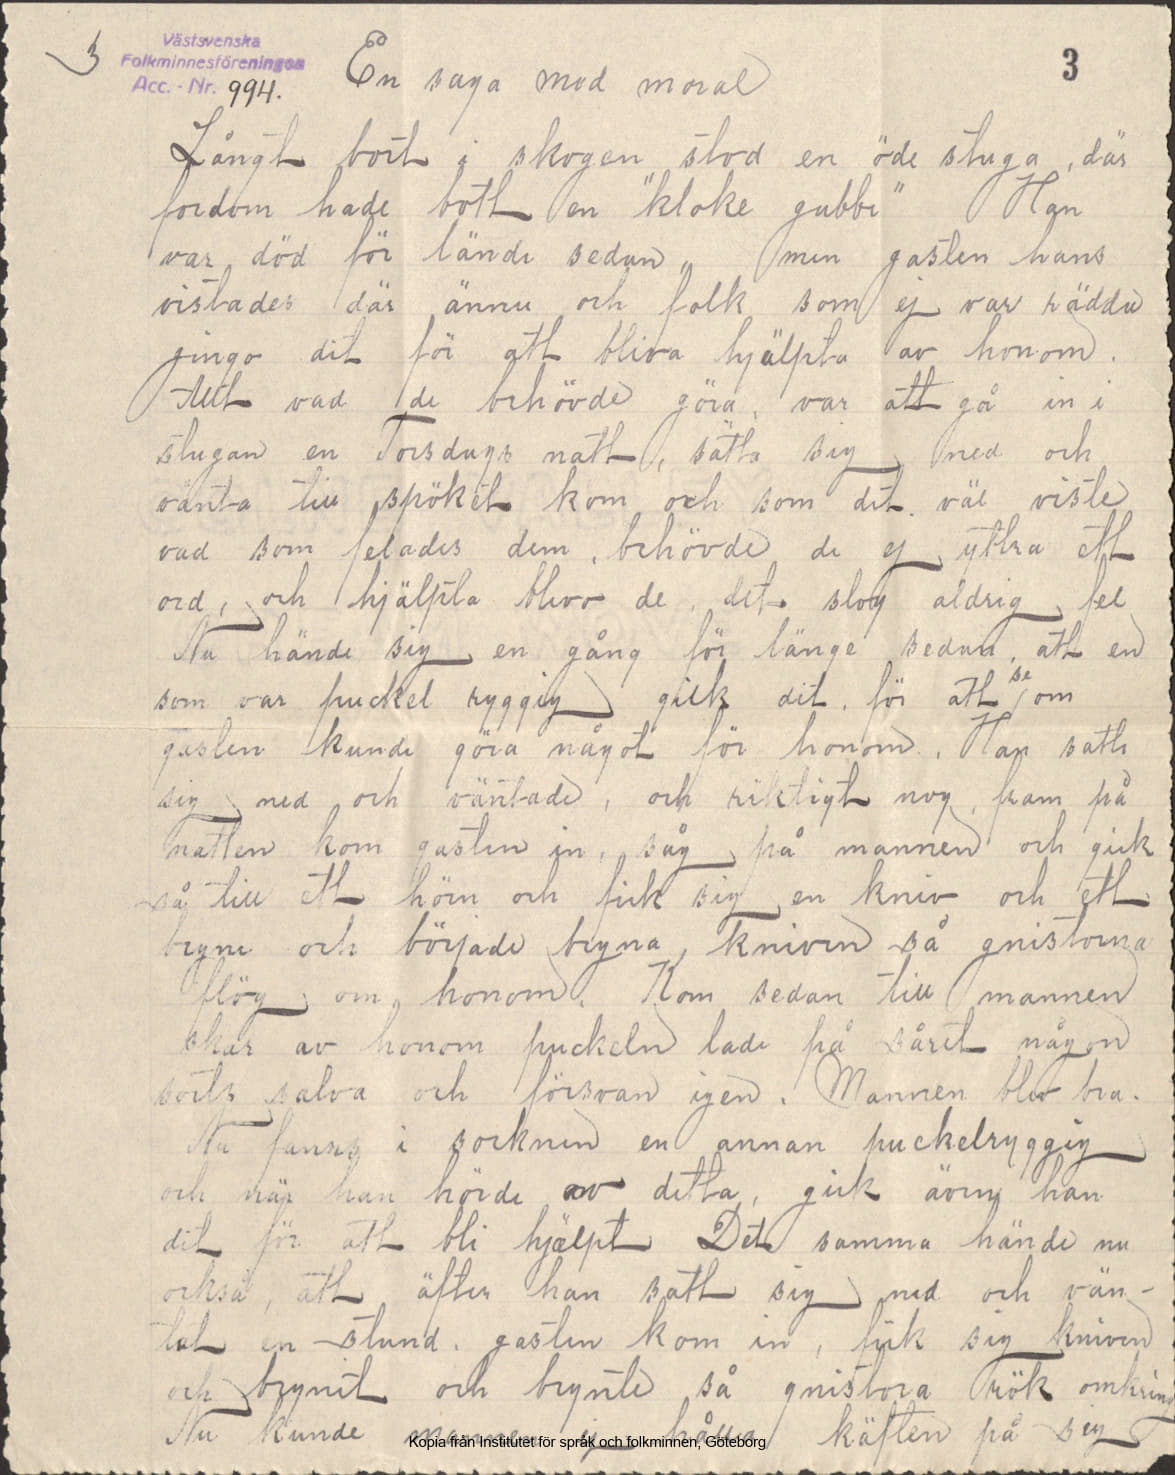 3
Västsvenska
Folkminnesföreningen
Acc. - Nr. 994.
En saga med moral
3
Långt bort i skogen stod en öde stuga, där
fordom hade bott en "kloke gubbe" Han
var död för lände sedan, men gasten hans
vistades där ännu och folk som ej var rädda
gingo dit för att bliva hjälpta av honom.
Allt vad de behövde göra, var att gå in i
stugan en Torsdags natt, sätta sig ned och
vänta till spöket kom och som det väl visste
vad som felades dem, behövde de ej yttra ett
ord, och hjälpta blevo de, det slog aldrig fel
Nu hände sig en gång för länge sedan, att en
som var puckel ryggig gick dit, för att se om
gasten kunde göra något för honom. Han satte
sig ned och väntade, och riktigt nog, fram på
natten kom gasten in, såg på mannen och gick
så till ett hörn och fick sig en kniv och ett
bryne och började bryna kniven så gnistorna
flög om honom. Kom sedan till mannen
skar av honom puckeln lade på såret någon
sorts salva och försvan igen. Mannen blev bra.
Nu fanns i socknen en annan puckelryggig
och när han hörde av detta, gick även han
dit för att bli hjälpt Det samma hände nu
också, att äfter han satt sig ned och vän-
tat en stund, gasten kom in, fick sig kniven
och brynet och brynte så gnistora rök omkring
Nu kunde mannen ej hålla käften på sig
Kopia från Institutet för språk och folkminnen, Göteborg